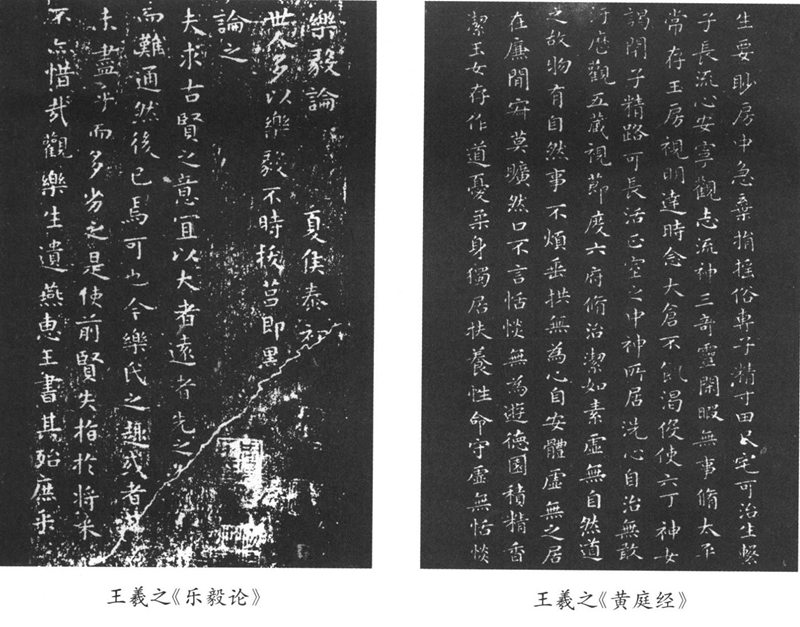 樂毅論 夏侯泰初
世人多以樂毅不時拔莒即墨
論之
夫求古賢之意宜以大者遠者先之
而難通然後已焉可也今樂氏之趣或者其
未盡乎而多劣之是使前賢失指於將來
不亦惜哉觀樂生遺燕惠王書其殆庶乎
王羲之《乐毅论》
生要眇房中急棄捐搖俗專子精寸田尺宅可治生繫
子長流心安寧觀志流神三奇靈閑暇無事脩太平
常存玉房視明達時念大倉不飢渴役使六丁神女
謁閉子精路可長活正室之中神所居洗心自治無敢
汙歷觀五藏視節度六府脩治潔如素虛無自然道
之故物有自然事不煩垂拱無為心自安體虛無之居
在廉間寂莫曠然口不言恬惔無為遊德園積精香
潔玉女存作道憂柔身獨居扶養性命守虛無恬惔
王羲之《黄庭经》